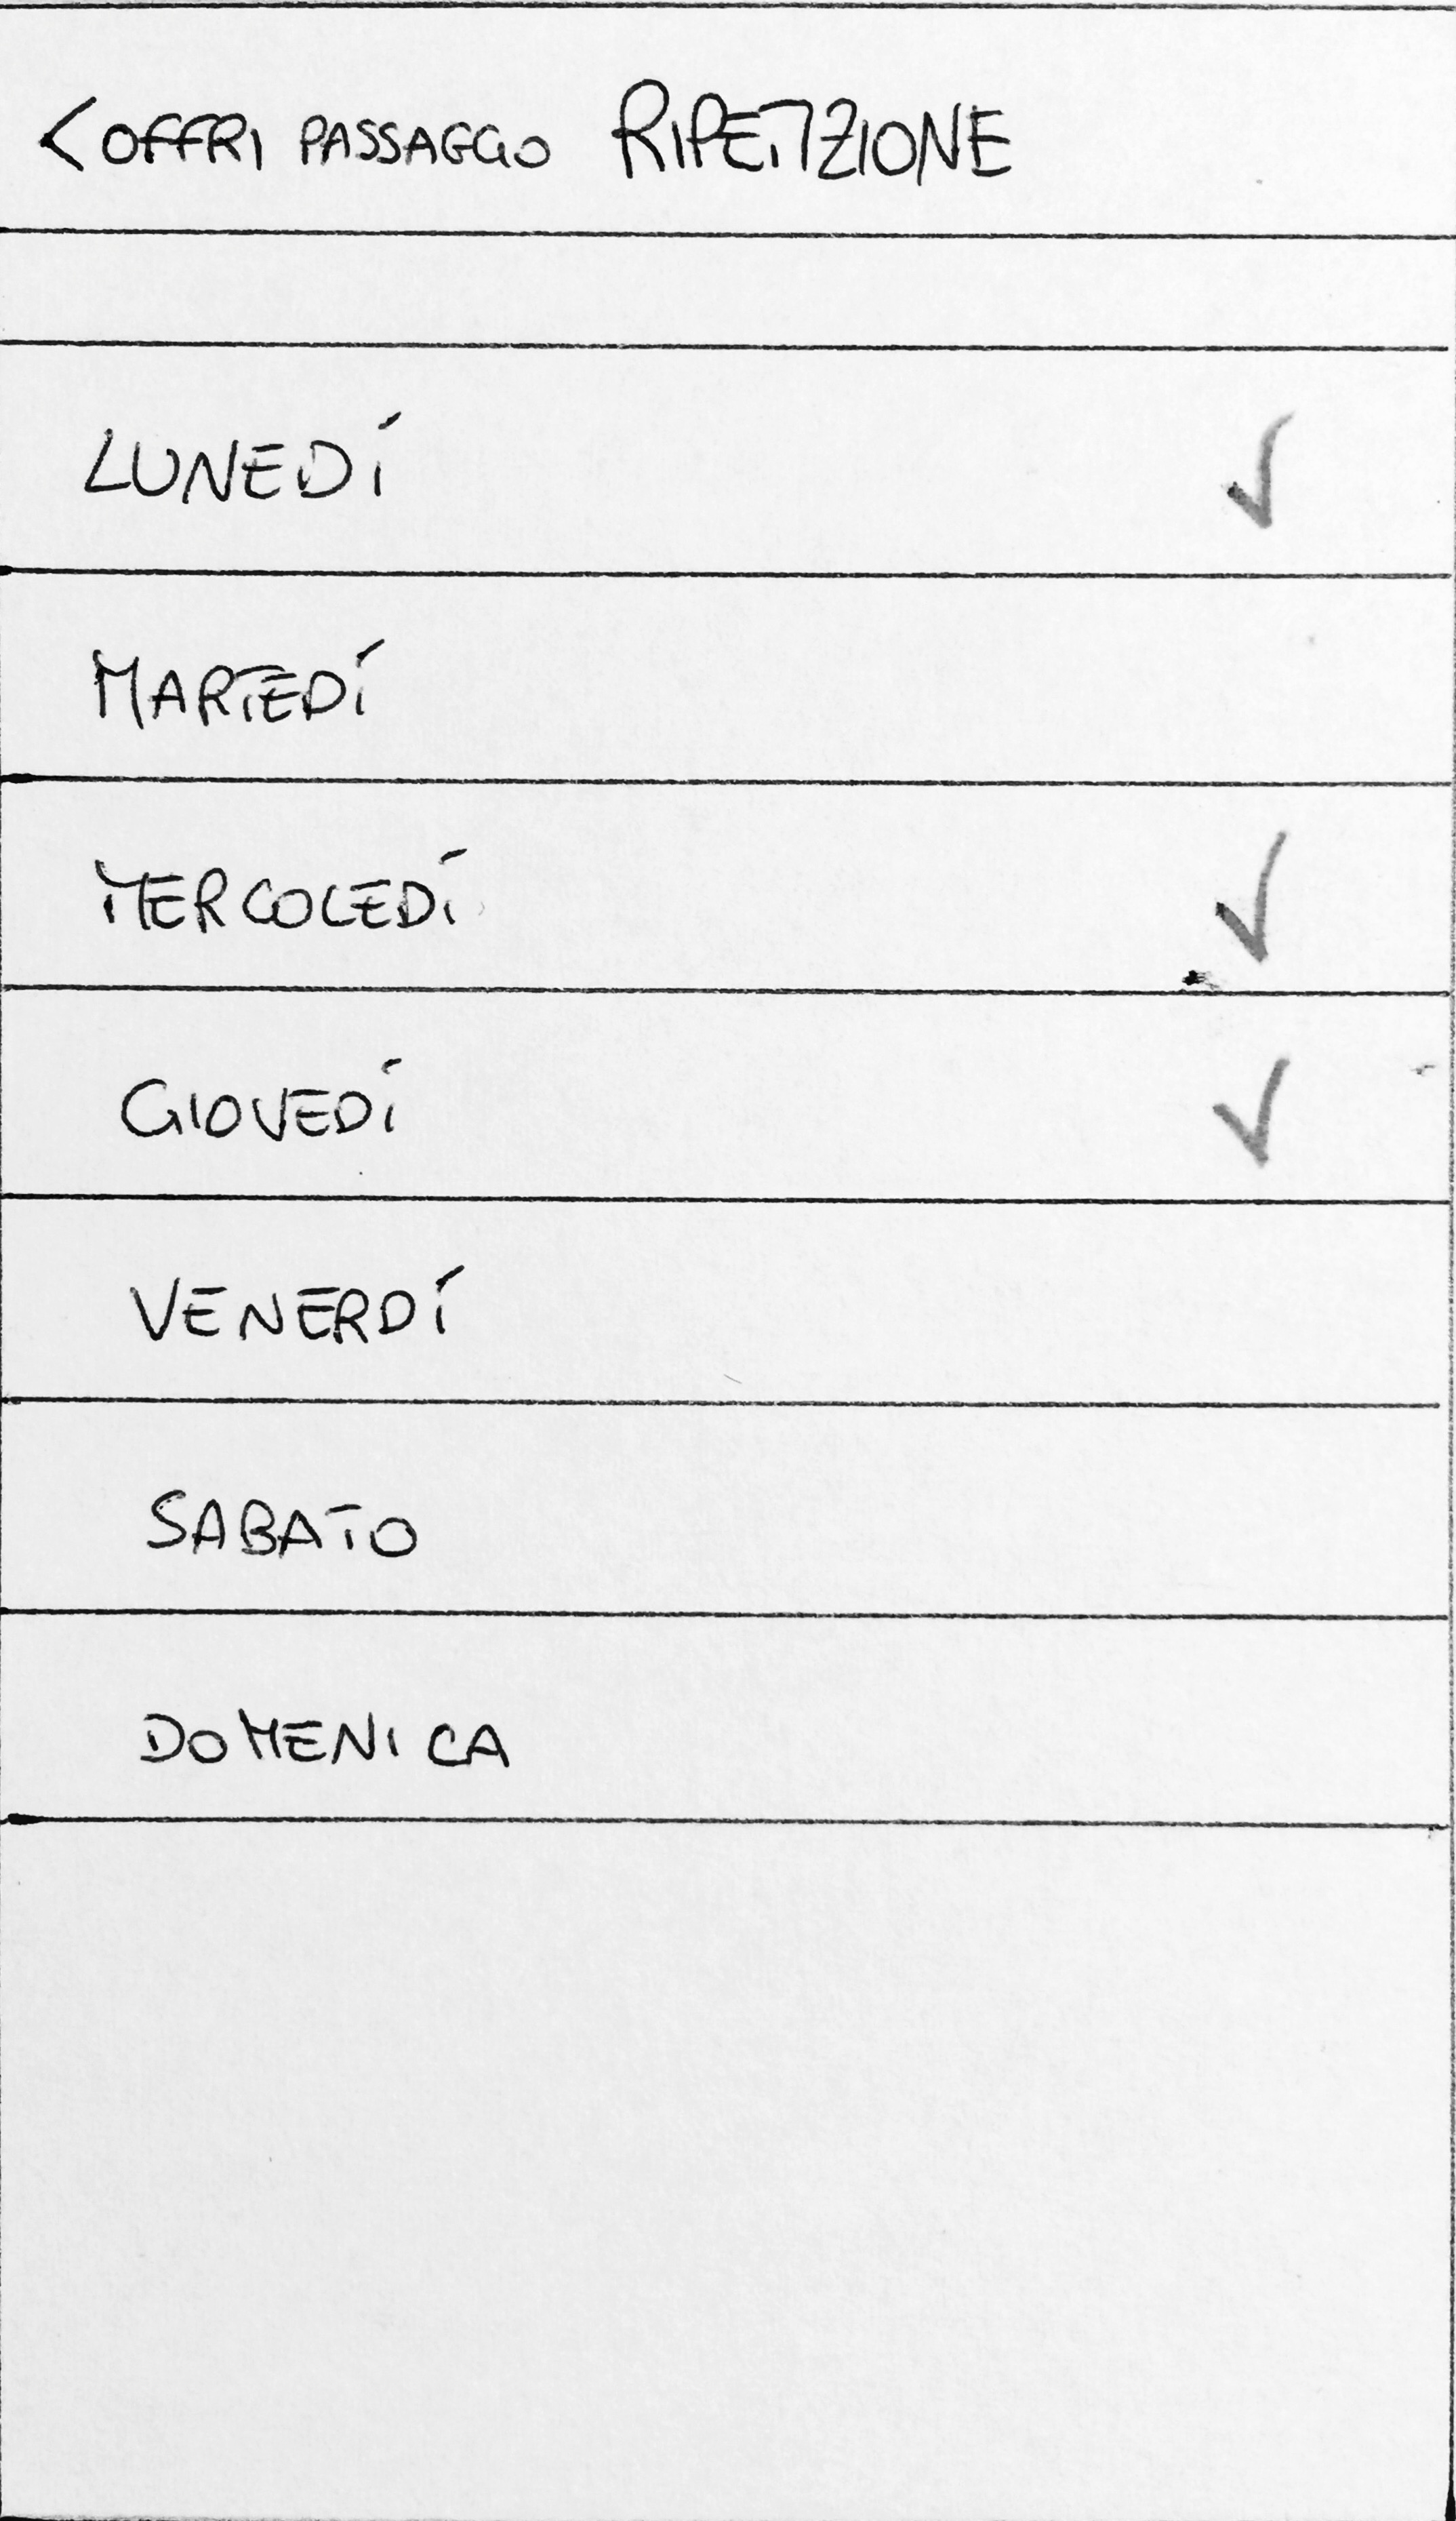 < OFFRI PASSAGGIO RIPETIZIONE
LUNEDÍ ✓
MARTEDÍ
MERCOLEDÍ ✓
GIOVEDÍ ✓
VENERDÍ
SABATO
DOMENICA